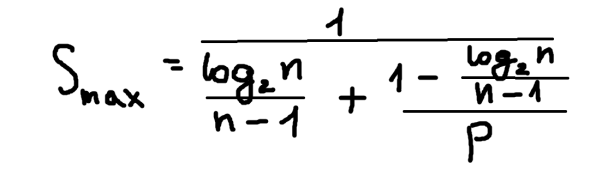 S_max = \frac{1}{\frac{log_2 n}{n-1} + \frac{1 - \frac{log_2 n}{n-1}}{p}}